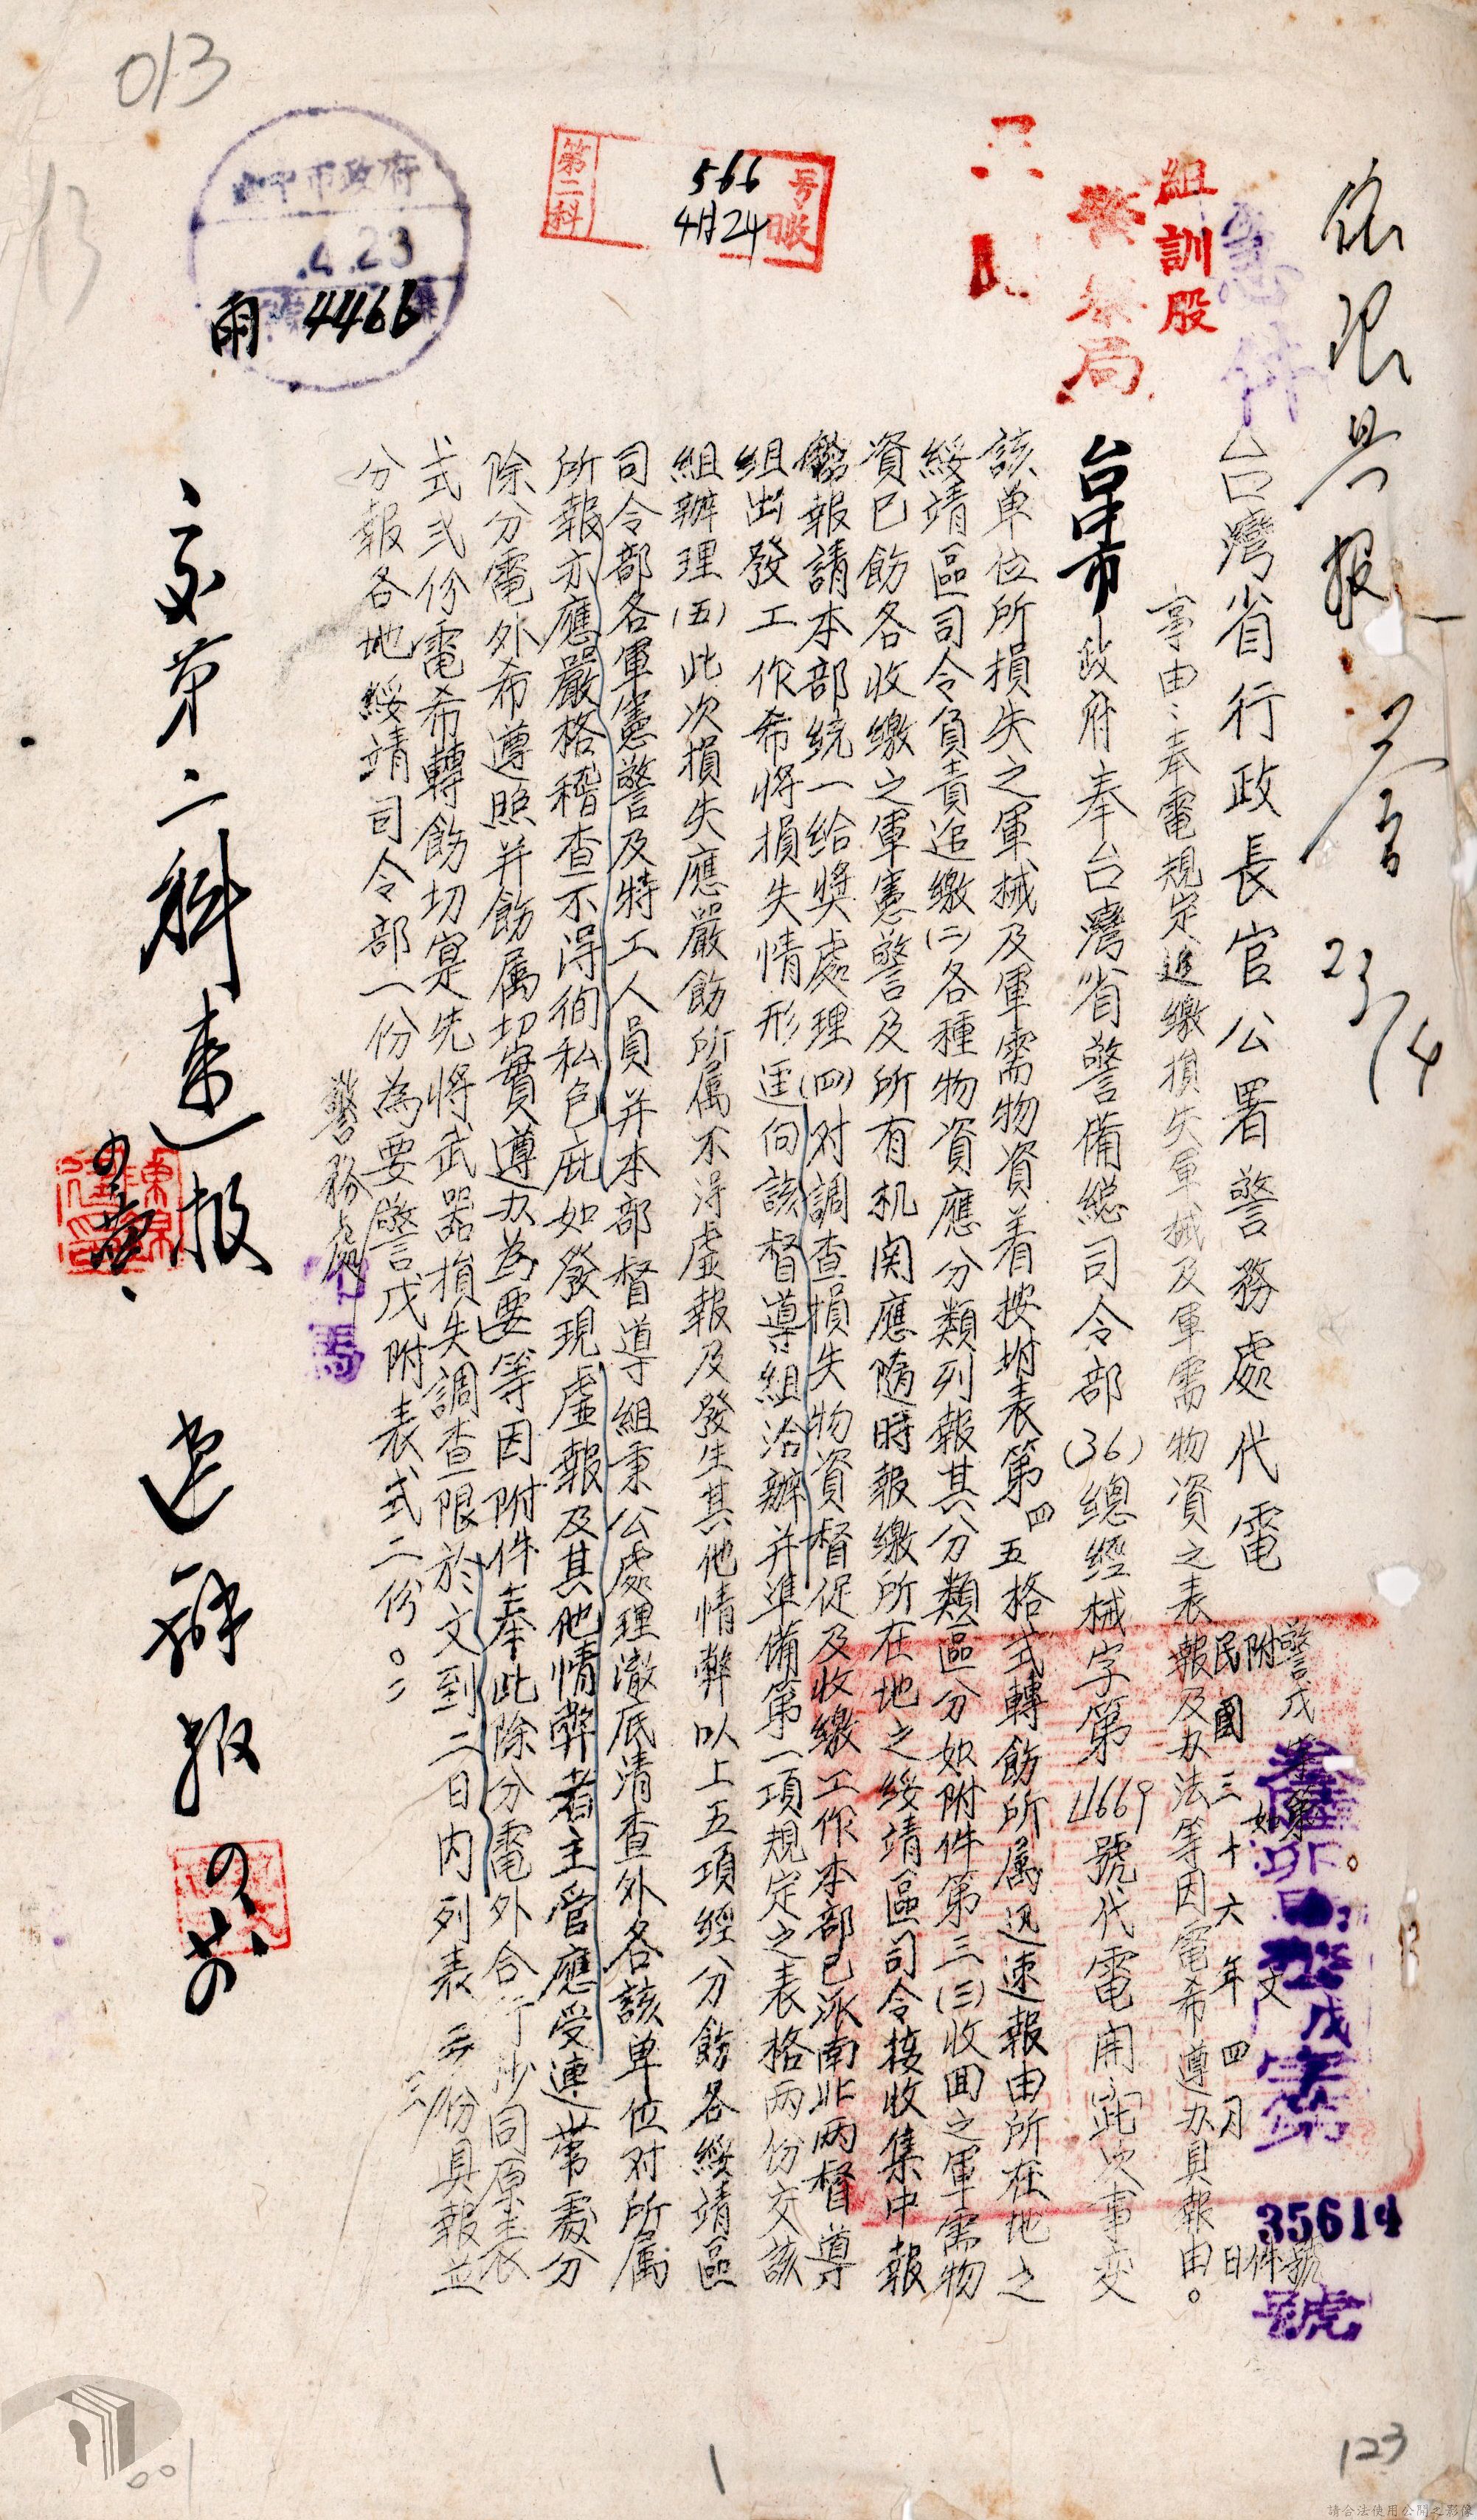 013
依限具報
23/4
急件
組訓股
警務局
第二科
号
收
566
4月24日
市政府
.4.23
雨 4466
台灣省行政長官公署警務處代電
警戌 字第 號
附 如 文 件
民國三十六年四月 日
卯 警戌字第
35614
號
事由:奉電規定追繳損失軍械及軍需物資之表報及办法等因電希遵办具報由。
台中市政府奉台灣省警備総司令部(36)總經械字第4669號代電開「此次事变
該单位所損失之軍械及軍需物資着按坿表第四五格式轉飭所属迅速報由所在地之
綏靖區司令負責追繳(二)各種物資應分類列報其分類區分如附件第三(三)收囬之軍需物
資已飭各收繳之軍憲警及所有机関應隨時報繳所在地之綏靖區司令接收集中報
報請本部統一給獎處理(四)对調查損失物資督促及收繳工作本部已派南北两督導
組出發工作希将損失情形逕向該督導組洽辦并準備第一項規定之表格两份交該
組辦理(五)此次損失應嚴飭所属不得虚報及發生其他情弊以上五項經分飭各綏靖區
司令部各軍憲警及特工人員并本部督導組秉公處理澈底清查外各該单位对所属
所報亦應嚴格稽查不得徇私包庇如發現虚報及其他情弊者主官應受連帶處分
除分電外希遵照并飭属切實遵办為要」等因附件奉此除分電外合行抄同原表
式弍份電希轉飭切寔先将武器損失調查限於文到二日内列表三份具報並
分報各地綏靖司令部一份為要警戌附表式二份。
警務處
交第二科速報
迅辦報
123
1
001
請合法使用公開之影像